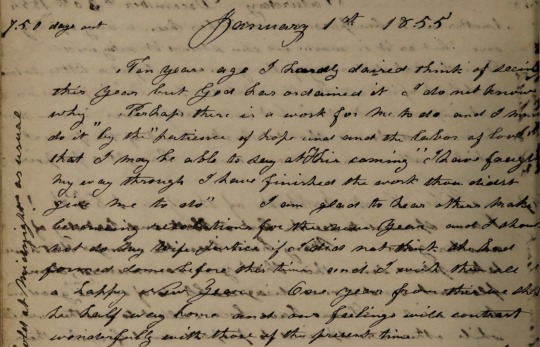 750 days out
January 1st 1855
Ten years ago I hardly daired think of seeing
this Year but God has ordained it I do not know
why Perhaps there is a work for me to do and I may
do it by the "patience of hope and the labor of love
that I may be able to say at His coming "I have fought
my way through I have finished the work thou didst
give me to do" I am glad to hear others make
resolutions for the new Year and I should
not do my wife justice if I did not think she had
formed some before this time and I wish them all
a happy New Year. One year from this we shall
be half way home and our feelings will contrast
wonderfully with those of the present time
as usual